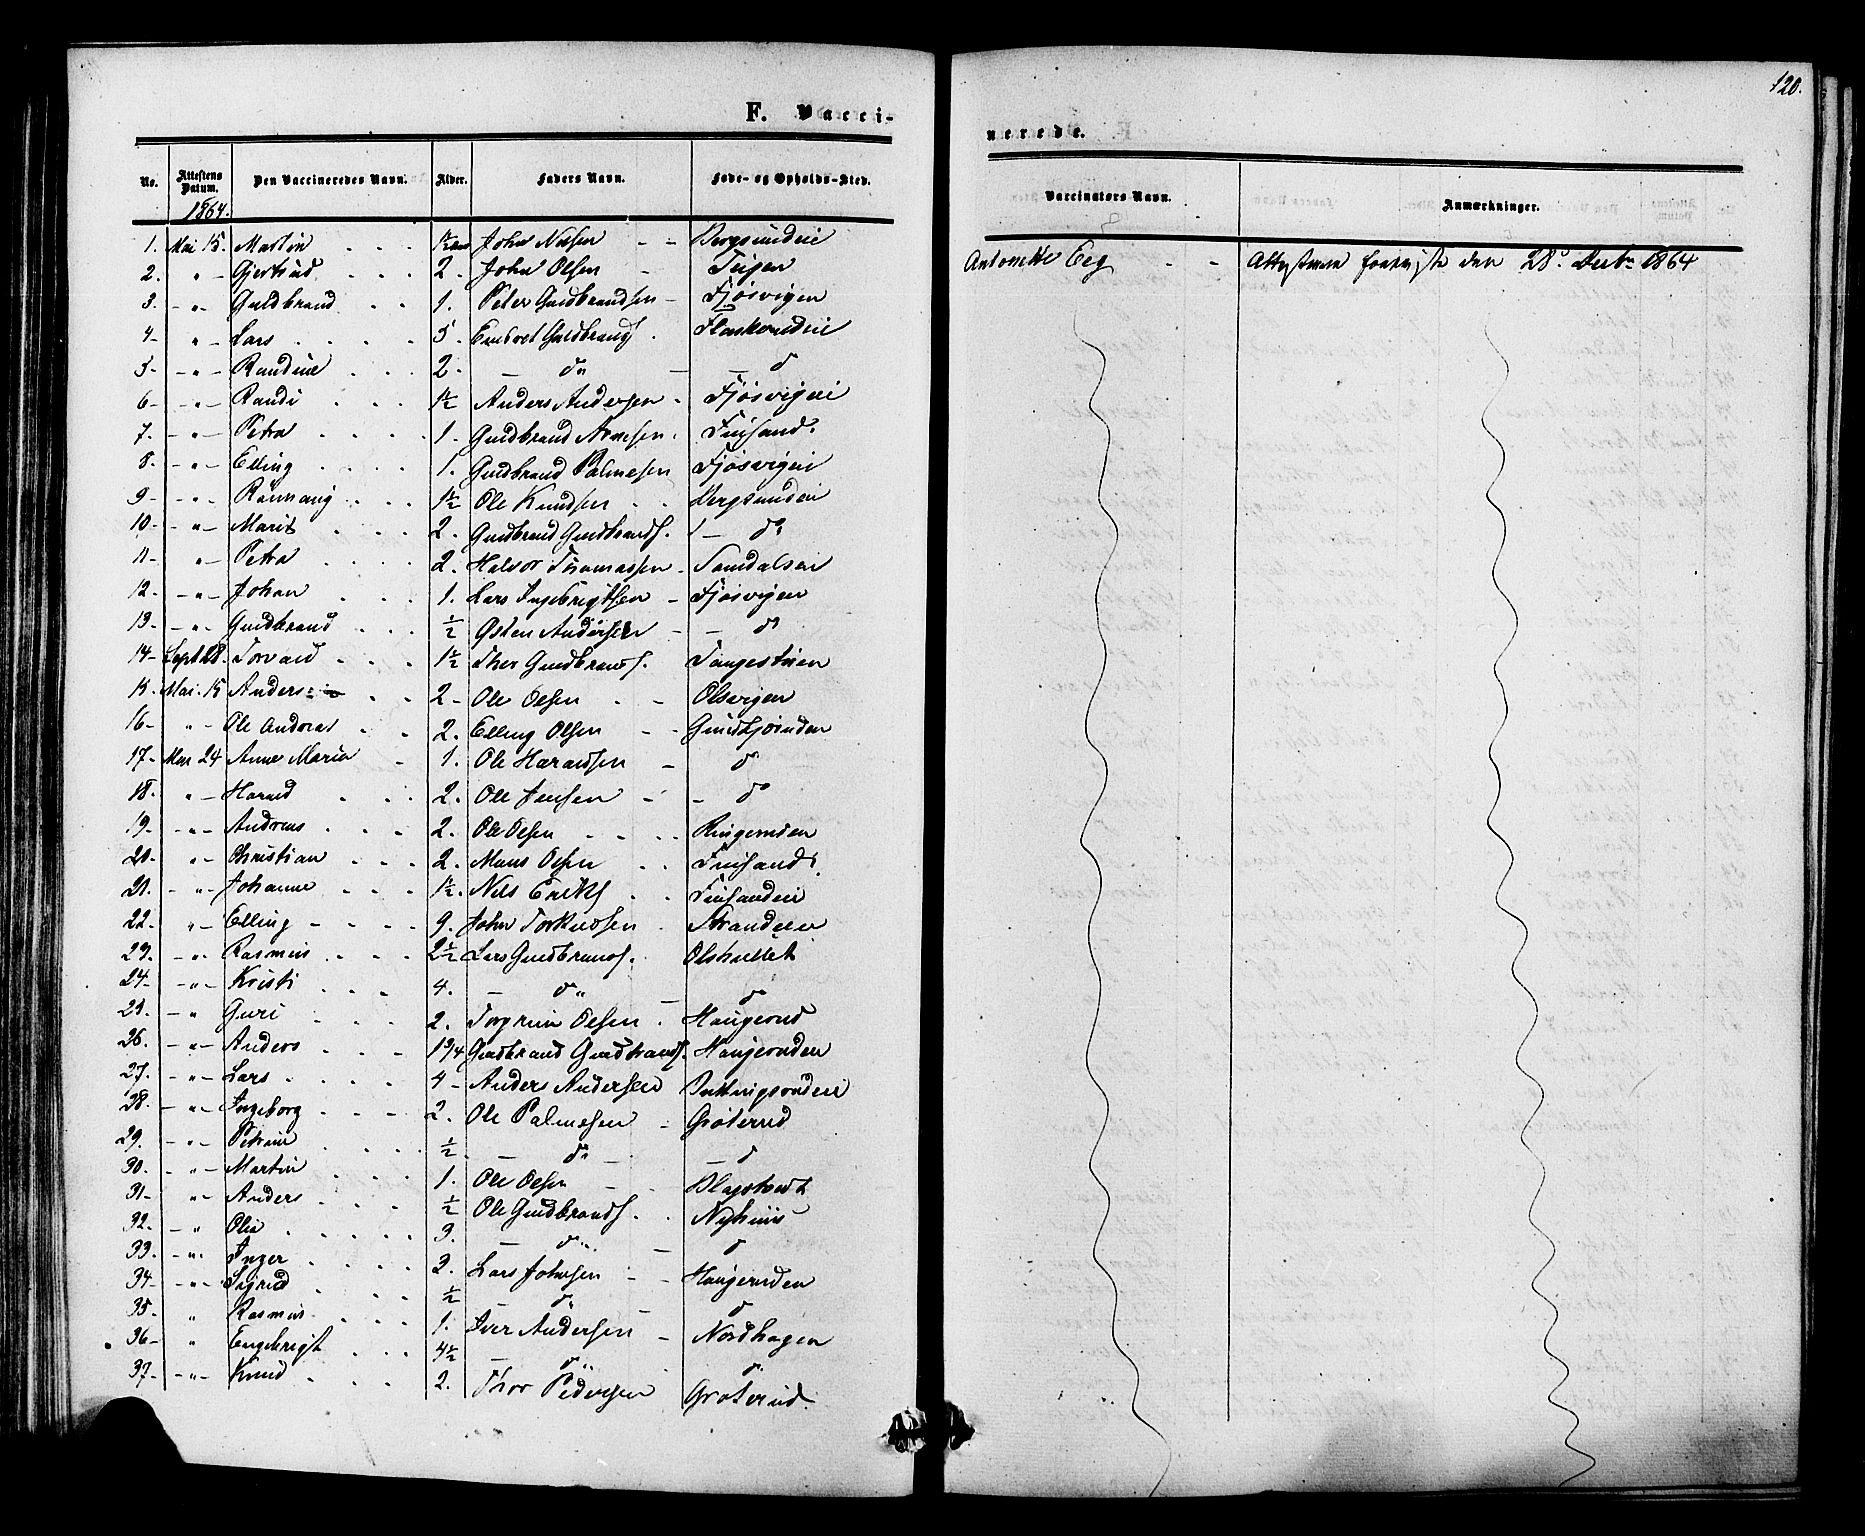 120.
F. Vacci-
nerede.
No. Attestens Datum. Den Vaccineredes Navn. Alder. Faders Navn. Føde- og Opholds-Sted. Vaccinators Navn. Anmærkninger.
1864.
1. Mai 15. Martin 1½ John Nilsen Bergsundeie Antonette Eeg Attesterne foreviste den 28d. Decbr 1864
2. " Gjertrud 2. John Olsen Teigen
3. " Guldbrand 1. Peter Gudbrandsen Fjösvigen
4 " Lars 5. Embret Guldbrands
5 " Randine 2. do do
6 " Randi 1½ Anders Andersen Fjösvigeie
7. " Petra 1. Gudbrand Arnesen Fuisand.
8. " Elling 1. Gudbrand Palmesen Fjösvigeie
9 " Rönnaug 1½ Ole Knudsen Bergsundeie
10 " Marit 2. Gudbrand Gudbrands. do
11 " Petra 2. Halvor Thomassen
12 " Johan 1. Lars Ingebrigtsen Fjösvigen
13. " Gudbrand ½ Østen Andersen do
14 Sept 28. Torvald 1½ Thor Gudbrands. Tangestuen
15. Mai 15 Anders 2 Ole Olsen Olsvigen
16 " Ole Andreas 2. Elling Olsen
17 24 Anne Maria 1. Ole Haraldsen do
18. " Harald 2. Ole Jensen do
19. " Andreas 2. Ole Olsen Ringeruden
20. " Christian 2. Mons Olsen Fuisand.
21. " Johanne 1½. Nils Eriks Fuisandeie
22. " Elling 9. John Torkildsen Stranden
23. " Rasmus 2½ Lars Gudbrands.
24 " Kristi 4. do do
25. " Guri 2. Torgrim Olsen Haugerud
26. " Anders 1¾ Gudbrand Gudbrands. Haugeruden
27. " Lars 4 Anders Andersen
28. " Ingeborg 2. Ole Palmesen Groterud
29. " Petrine ½. do do
30. " Martin 1. Ole Olsen
31 " Anders ½ Ole Gudbrands. Nyhuus
32. " Olia 3. do do
33. " Inger 3. Lars Johnsen Haugeruden
34 " Sigrid ½ do do
35. " Rasmus 1. Iver Andersen Nordhagen
36 " Engebrigt 4½ do do
37. " Knud 2. Thor Pedersen Groterud.